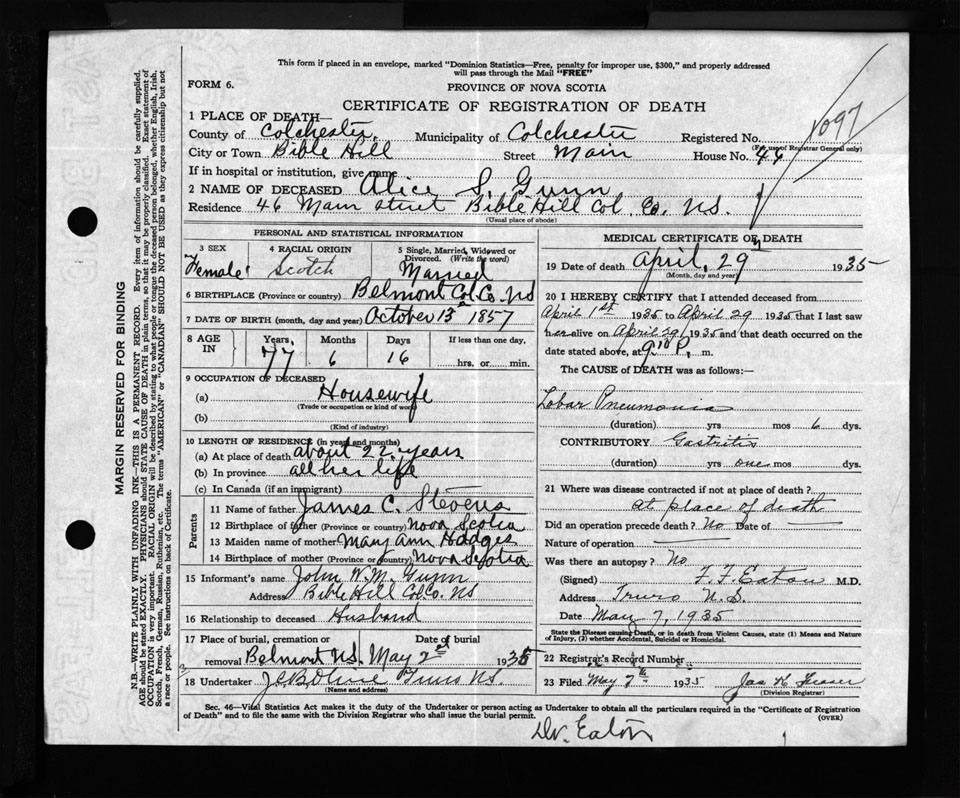 This form if placed in an envelope, marked "Dominion Statistics—Free, penalty for improper use, $300," and properly addressed
will pass through the Mail "FREE"
FORM 6.
PROVINCE OF NOVA SCOTIA
CERTIFICATE OF REGISTRATION OF DEATH
1097
1 PLACE OF DEATH—
County of Colchester. Municipality of Colchester Registered No.
(For use of Registrar General only)
City or Town Bible Hill Street Main House No. 46
If in hospital or institution, give name
2 NAME OF DECEASED Alice S. Gunn
Residence 46 Main Street Bible Hill Col. Co. N.S.
(Usual place of abode)
PERSONAL AND STATISTICAL INFORMATION
3 SEX 4 RACIAL ORIGIN 5 Single, Married, Widowed or Divorced. (Write the word)
Female Scotch Married
6 BIRTHPLACE (Province or country) Belmont Col. Co. NS
7 DATE OF BIRTH (month, day and year) October 13th 1857
8 AGE IN Years, Months Days If less than one day,
77 6 16 hrs. or min.
9 OCCUPATION OF DECEASED
(a) Housewife
(Trade or occupation or kind of work)
(b)
(Kind of industry)
10 LENGTH OF RESIDENCE (in years and months)
(a) At place of death about 22 years
(b) In province all her life
(c) In Canada (if an immigrant)
Parents
11 Name of father James C. Stevens
12 Birthplace of father (Province or country) Nova Scotia
13 Maiden name of mother Mary Ann Hodges
14 Birthplace of mother (Province or country) Nova Scotia
15 Informant's name John W. M. Gunn
Address Bible Hill Col. Co. NS
16 Relationship to deceased Husband
17 Place of burial, cremation or removal Belmont NS. Date of burial May 2nd 1935
18 Undertaker
(Name and address)
MEDICAL CERTIFICATE OF DEATH
19 Date of death April, 29 1935
(Month, day and year)
20 I HEREBY CERTIFY that I attended deceased from
April 1st 1935 to April 29 1935 that I last saw
her alive on April 29 1935 and that death occurred on the
date stated above, at P. m.
The CAUSE of DEATH was as follows:—
Lobar Pneumonia
(duration) yrs mos 6 dys.
CONTRIBUTORY Gastritis
(duration) yrs one mos dys.
21 Where was disease contracted if not at place of death?
At place of death
Did an operation precede death? No Date of
Nature of operation
Was there an autopsy? No
(Signed) F. F. Eaton M.D.
Address Truro N.S.
Date May 7, 1935
State the Disease causing Death, or in death from Violent Causes, state (1) Means and Nature
of Injury, (2) whether Accidental, Suicidal or Homicidal.
22 Registrar's Record Number
23 Filed May 7th 1935 Jas K Fraser
(Division Registrar)
Sec. 46—Vital Statistics Act makes it the duty of the Undertaker or person acting as Undertaker to obtain all the particulars required in the "Certificate of Registration
of Death" and to file the same with the Division Registrar who shall issue the burial permit.
(OVER)
Dr. Eaton
MARGIN RESERVED FOR BINDING
N.B.—WRITE PLAINLY WITH UNFADING INK—THIS IS A PERMANENT RECORD. Every item of information should be carefully supplied.
AGE should be stated EXACTLY. PHYSICIANS should STATE CAUSE OF DEATH in plain terms, so that it may be properly classified. Exact statement of
OCCUPATION is very important. RACIAL ORIGIN will be described by stating to what people or tongue the deceased person belonged, whether English, Irish,
Scotch, French, German, Russian, Ruthenian, etc. The terms "AMERICAN" or "CANADIAN" SHOULD NOT BE USED as they express citizenship but not
a race or people. See instructions on back of Certificate.